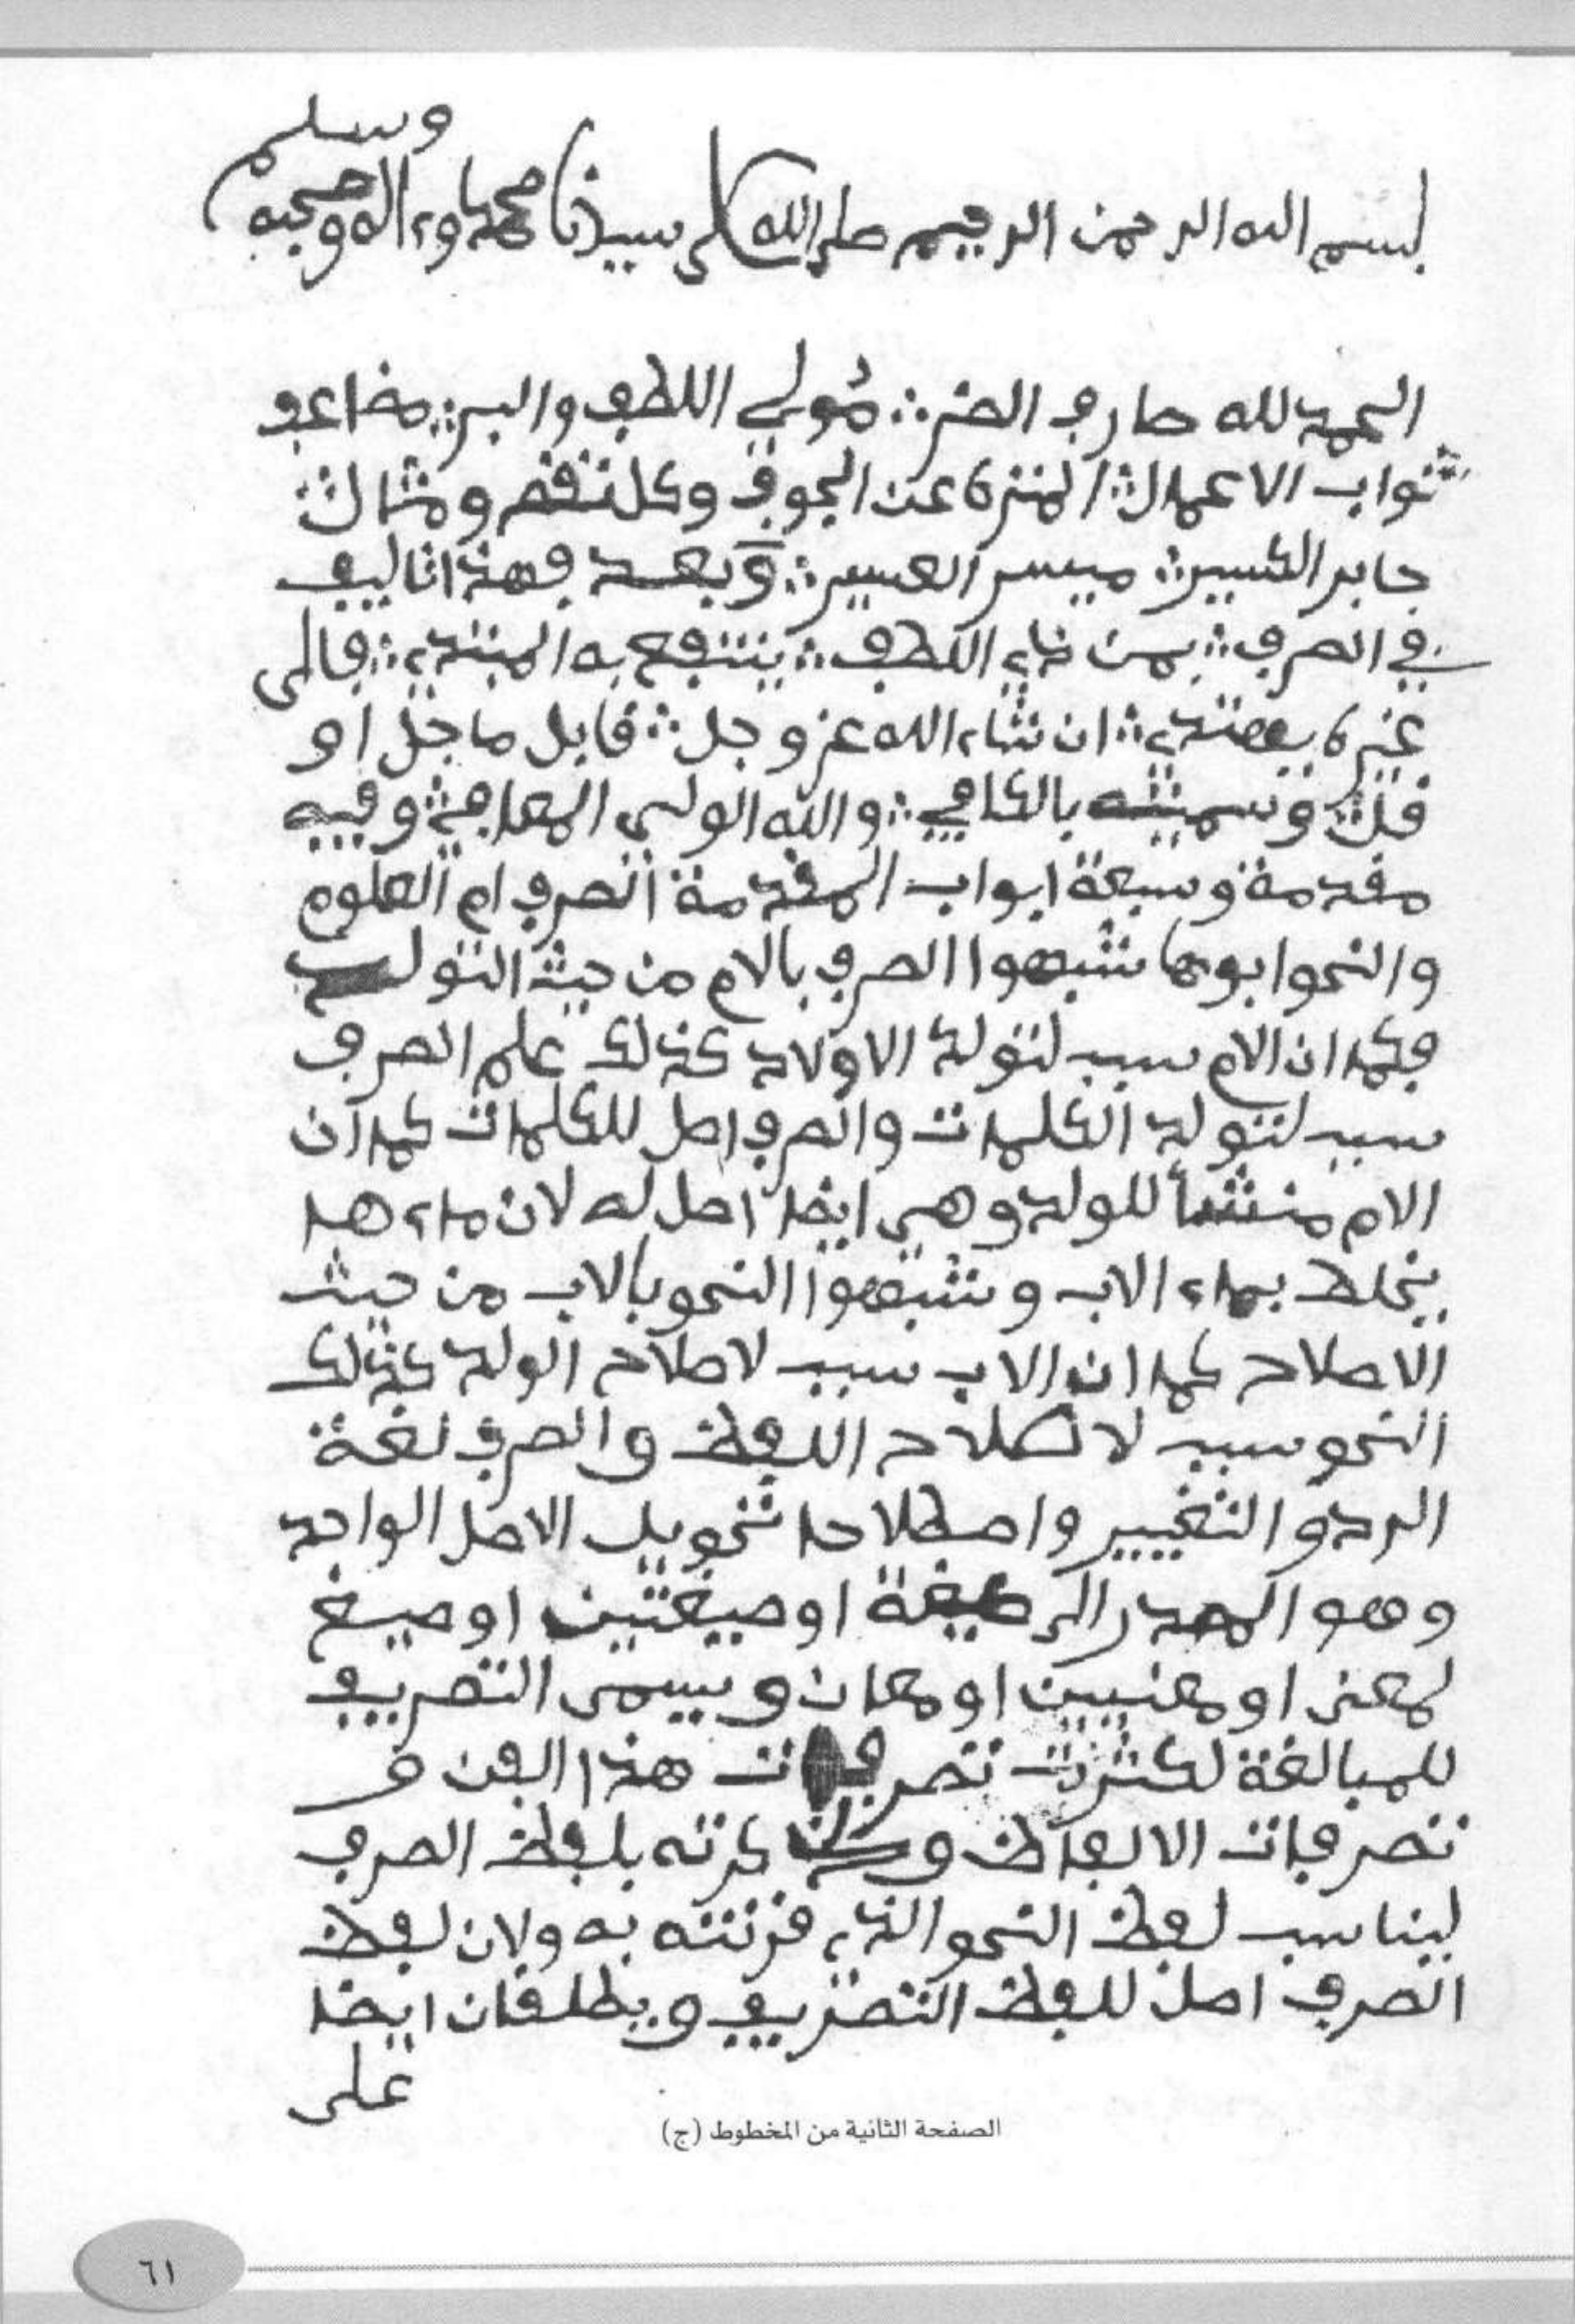 وسلم
بسم الله الرحمن الرحيم صلى الله على سيدنا محمد وءاله وصحبه
الحمد لله صارف الضر ∴ مُولي اللطف والبر ∴ مضاعف
ثواب الاعمال ∴ المنزه عن الجوف وكل نقص ومثال ∴
جابر الكسير ∴ ميسر العسير ∴ وبعد فهذا تاليف
في الصرف ∴ بمن ذي اللطف ∴ ينتفع به المبتدي ∴ فالى
غيره يهتدي ∴ ان شاء الله عز وجل ∴ قابل ما جل او
قل ∴ وسميته بالكافي ∴ والله الولي المعافي ∴ وفيه
مقدمة وسبعة ابواب المقدمة الصرف ام العلوم
والنحو ابوها شبهوا الصرف بالام من حيث التولد
فكما ان الام سبب لتولد الاولاد كذلك علم الصرف
سبب لتولد الكلمات والصرف اصل للكلمات كما ان
الام منشأ للولد وهي ايضا اصل له لان ماءها
يخلط بماء الاب وشبهوا النحو بالاب من حيث
الاصلاح كما ان الاب سبب لاصلاح الولد كذلك
النحو سبب لاصلاح اللفظ والصرف لغة
الرد والتغيير واصطلاحا تحويل الاصل الواحد
وهو المصدر الى صيغة او صيغتين او صيغ
لمعنى او معنيين او معان ويسمى التصريف
للمبالغة لكثرت تصرفات هذا الفن و
تصرفات الالفاظ و ذكرته بلفظ الصرف
ليناسب لفظ النحو الذي قرنته به ولان لفظ
الصرف اصل للفظ التصريف ويطلقان ايضا
على
الصفحة الثانية من المخطوط (ج)
٦١